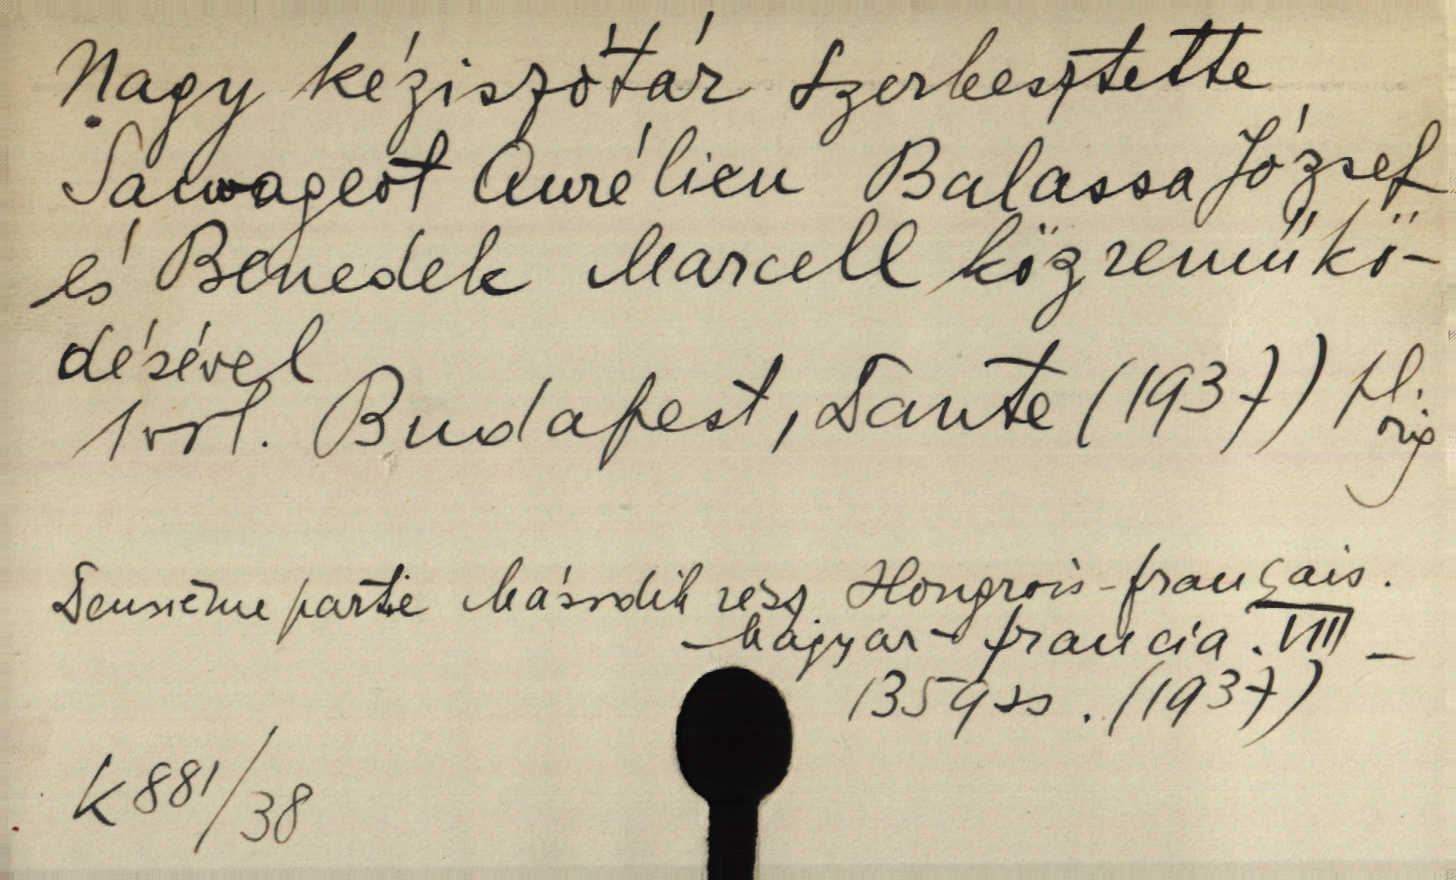 Nagy kéziszótár Szerkesztette
Sauvageot Aurélien Balassa József
és Benedek Marcell közremükö-
désével
1 vol. Budapest, Dante (1937) pł.
oryg
Deusième partie Második resz Hongrois-français.
Magyar-francia. VIII -
1359 ss. (1937)
K 881/38